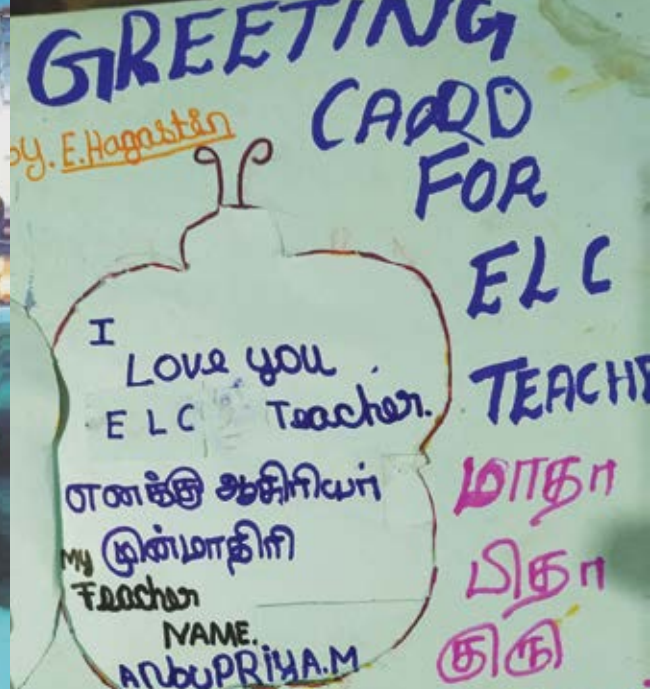 GREETING
CARD
FOR
ELC
TEACHE
By. E.Hagastin
I
Love you
ELC Teacher.
எனக்கு ஆசிரியர்
முன்மாதிரி
My
Teacher
NAME.
ANbUPRiYA.M
மாதா
பிதா
குரு